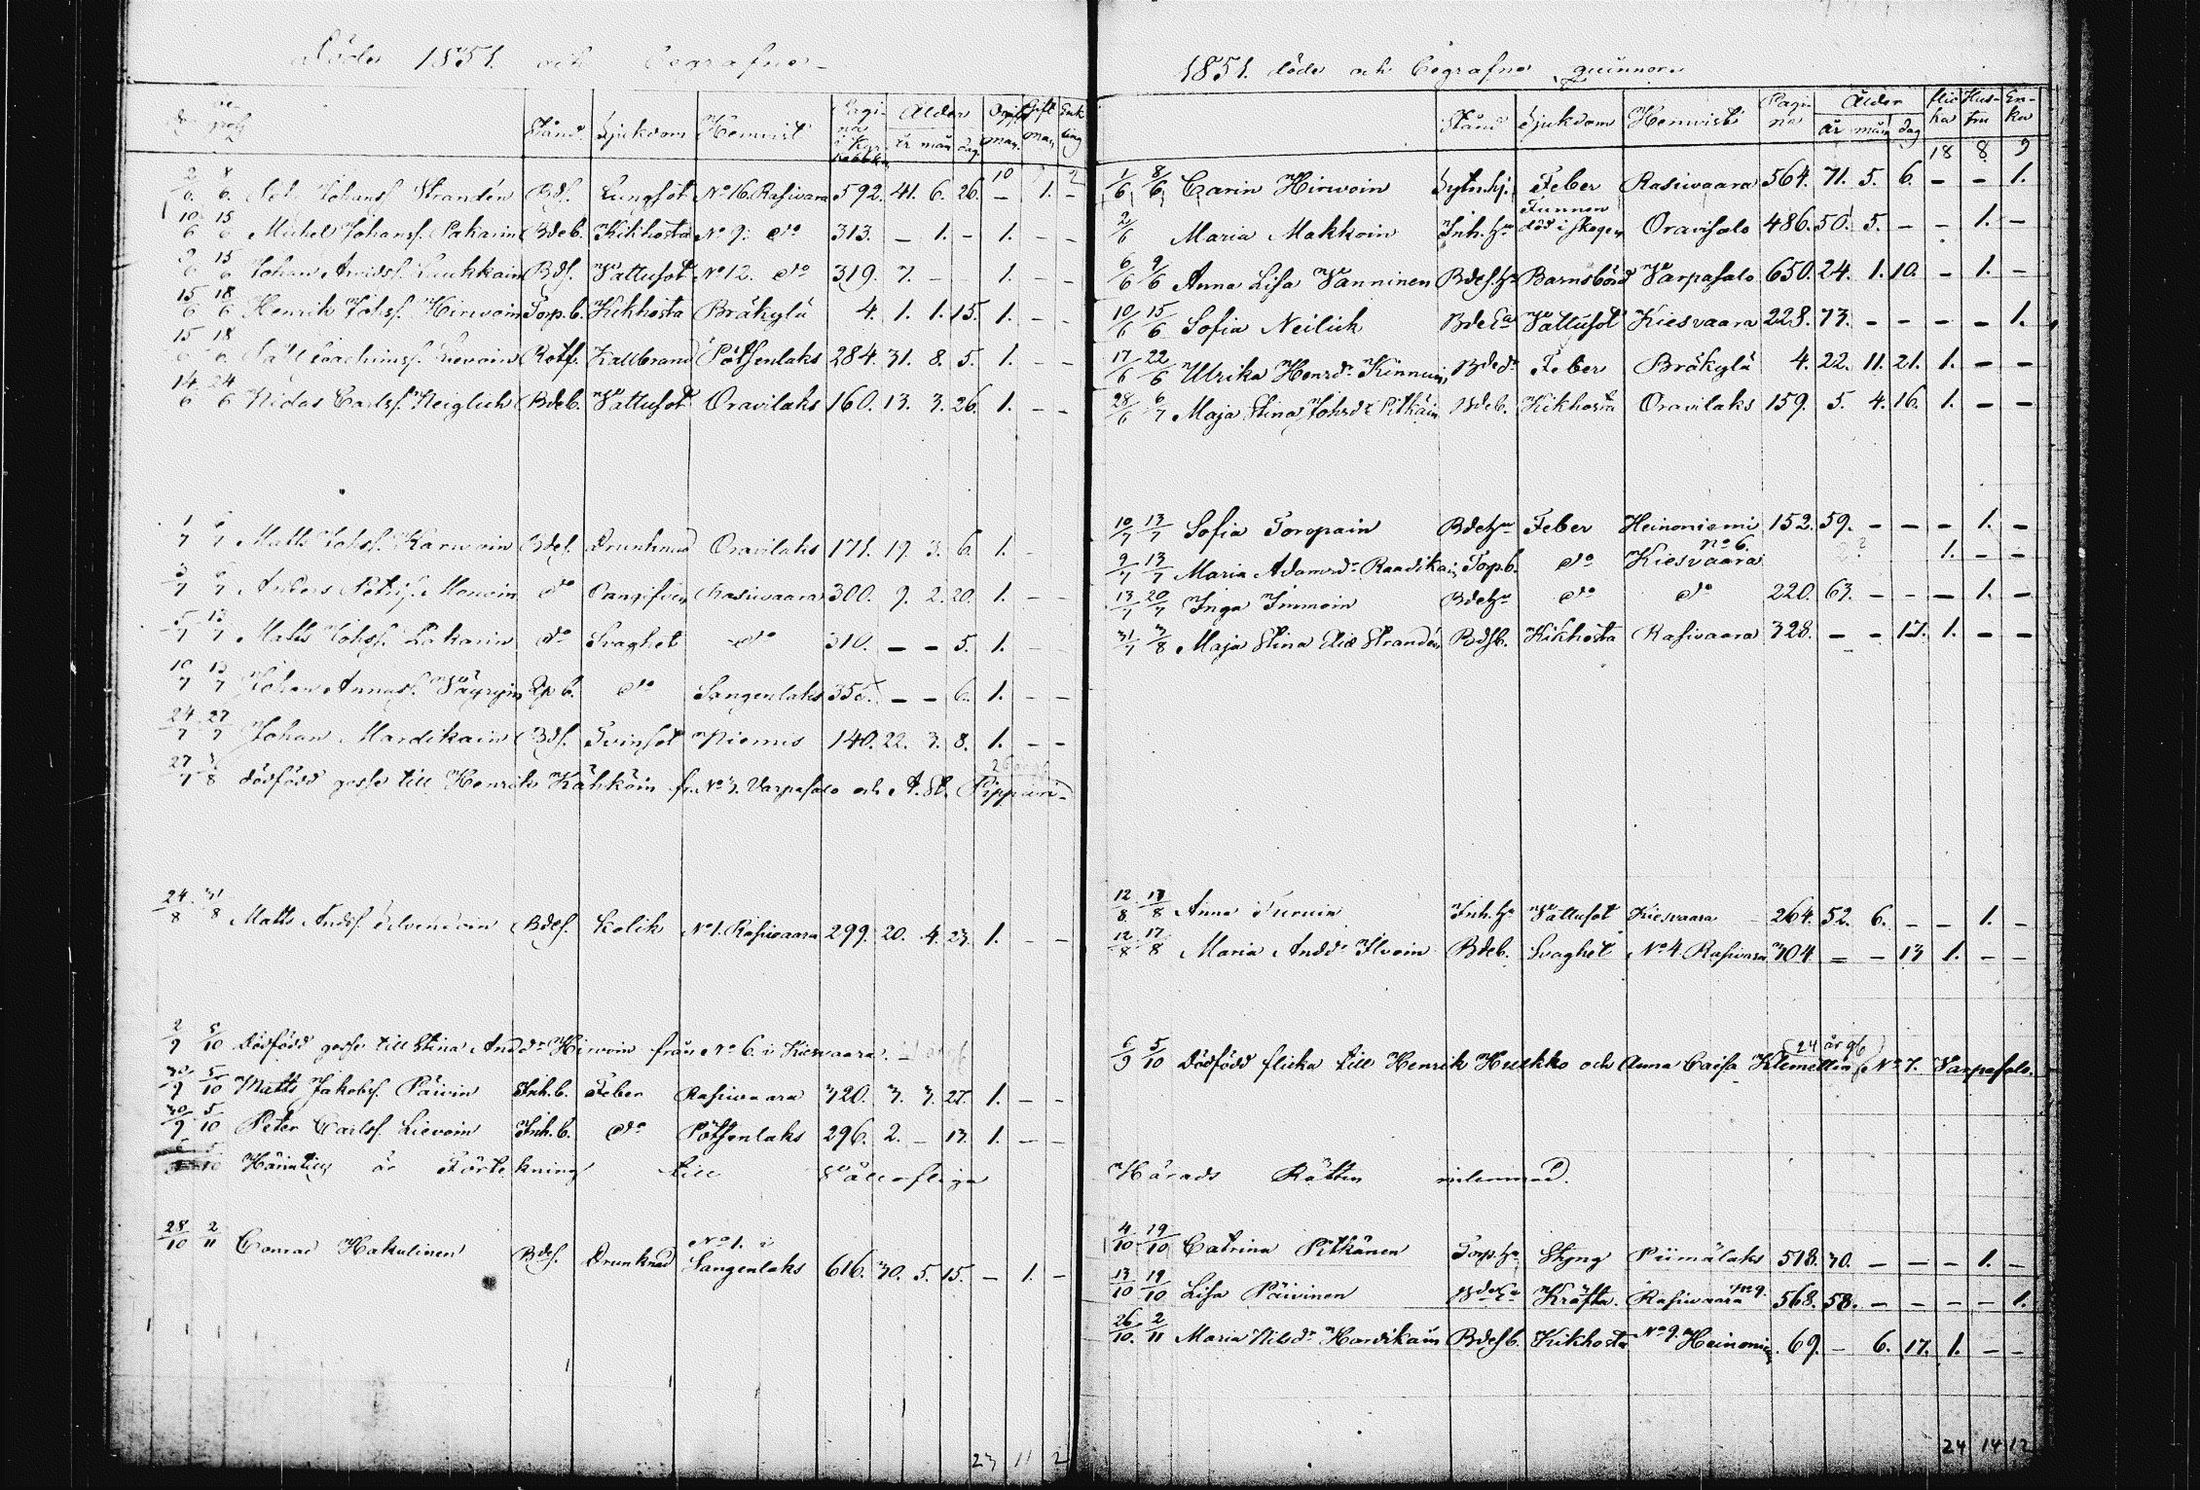 Döde 1851. och begrafne
Stånd Sjukdom Hemvist Pagina i Kyr. Ålder år mån dag Ogift man Gift man Enkling
10 1 2
2/6 8/6 Joh. Johansf. Strandén Bdf. Lungsot No 16. Rasivara 592. 41. 6. 26. – 1. –
10/6 15/6 Michel Johansf. Pakarin Bdeb. Kikhosta No 9. do 313. – 1. – 1. – –
15/6 Johan Luukkain Bdf. Vattusot No 12. do 319. 7. – 1. – –
15/6 18/6 Henrik Johsf. Hirvoin Torp.b. Kikhosta Bräkylä 4. 1. 1. 15. 1. – –
15/6 18/6 Lievoin Kallbrand Pötsenlaks 284. 31. 8. 5. 1. – –
14/6 24/6 Nidas Carlsf. Neiglich Bdeb. Vattusot Oravilaks 160. 13. 3. 26. 1. – –
1/7 6/7 Matts Johsf. Karvoin Bdef. Drunknad Oravilaks 171. 19. 3. 6. 1. –
Anders do Rasivaara 300. 9. 2. 20. 1. – –
5/7 13/7 Matts Johsf. Pakarin do Svaghet do 310. – – 5. 1. – –
10/7 13/7 Johan Väyryin do Sangenlaks 356. – – 6. 1. – –
24/7 27/7 Johan Mardikain Bdf. Tvinsot Niemis 140. 22. 3. 8. 1. – –
27/7 3/8 dödfödd gosse till Henrik Kähköin fr. No 3. Varpasalo och A. St. Pippuri
24/8 31/8 Matts Andsf. Bdef. Kolik No 1. Rasivaara 299. 20. 4. 23. 1. – –
2/9 5/10 Dödfödd gosse till Stina Andd:r Hirvoin från No 6. i Kiesvaara.
30/9 5/10 Matts Jakobsf. Päivin Inh.b. Feber Rasivaara 320. 3. 3. 27. 1. – –
30/9 5/10 Peter Carlsf. Lievoin Inh.b. do Pötsenlaks 296. 2. – 13. 1. – –
Härintill är Förteckning till Vällofliga
28/10 2/11 Conrad Hakulinen Bdef. Drunknad No 1. i Sangenlaks 616. 30. 5. 15. – 1. –
23 11 2
1851. döde och begrafne qvinnor
Stånd Sjukdom Hemvist Pagina Ålder år mån dag flicka Hustru Enka
18 8 9
1/6 8/6 Carin Hirvoin Sytn.hj. Feber Rasivaara 564. 71. 5. 6. – – 1.
2/6 Maria Makkoin Inh.hu Funnen död i skogen Oravisalo 486. 50. 5. – – 1. –
6/6 9/6 Anna Lisa Vanninen Bdes.hu Barnsbörd Varpasalo 650. 24. 1. 10. – 1. –
10/6 15/6 Sofia Neilich Bde Ea Vattusot Kiesvaara 228. 73. – – – – 1.
17/6 22/6 Ulrika Henrd:r Kinnuin Bde dr Feber Bräkylä 4. 22. 11. 21. 1. – –
28/6 6/7 Maja Stina Johsd:r Pitkäin Bdeb. Kikhosta Oravilaks 159. 5. 4. 16. 1. – –
10/7 13/7 Sofia Toropain Bdehu Feber Heinoniemi 152. 59. – – – 1. –
9/7 13/7 Maria Adamsd:r Raadikain Torp.b. do No 6. Kiesvaara 1. – –
13/7 20/7 Inga Immoin Bdehu do do 220. 63. – – – 1. –
31/7 3/8 Maja Stina Strandén Bdsb. Kikhosta Rasivaara 328. – – 17. 1. – –
12/8 17/8 Anna Inh.hu Vattusot Kiesvaara 264. 52. 6. – – 1. –
12/8 17/8 Maria Andd:r Ilvoin Bdeb. Svaghet No 4. Rasivara 304. – – 13 1. – –
6/9 5/10 Dödfödd flicka till Henrik Huikko och Anna Caisa Klemettin (24 år gl) fr. No 7. Varpasalo.
Härads Rätten inlemnad.
4/10 19/10 Catrina Pitkänen Torp.hu Styng Piimälaks 518. 30. – – – 1. –
13/10 19/10 Lisa Päivinen Bde Ea Kräfta Rasivaara No 9. 568. 58. – – – – 1.
26/10 2/11 Maria Nilsd:r Hardikain Bdesb. Kikhosta No 9. Heinoniemi 69. – 6. 17. 1. – –
24 14 12